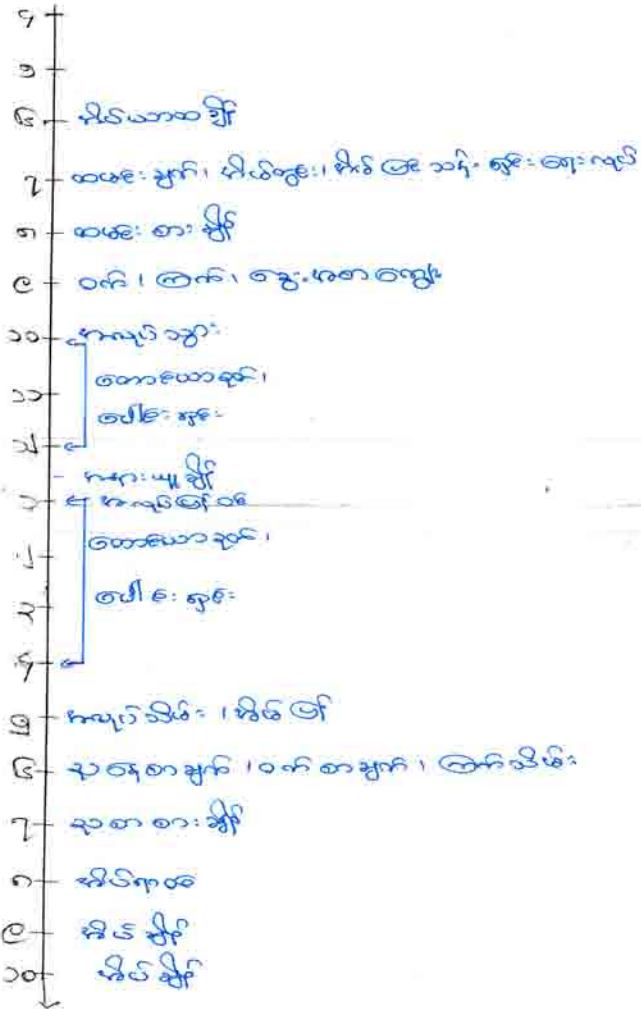 ၄
၅
၆ အိပ်ယာထချိန်
၇ ထမင်းချက်၊ အိမ်တွင်း၊ အိမ်ပြင် သန့်ရှင်းရေးလုပ်
၈ ထမင်းစားချိန်
၉ ဝက်၊ ကြက်၊ ခွေး အစာကျွေး
၁၀ အလုပ်သွား
တောင်ယာခုတ်၊
၁၁
ပေါင်းရှင်း
၁၂
အနားယူချိန်
၁ အလုပ်ပြန်ဝင်
တောင်ယာခုတ်၊
၂
ပေါင်းရှင်း
၃
၄
၅ အလုပ်သိမ်း၊ အိမ်ပြန်
၆ ညနေစာချက်၊ ဝက်စာချက်၊ ကြက်သိမ်း
၇ ညစာစားချိန်
၈ အိပ်ရာဝင်
၉ အိပ်ချိန်
၁၀ အိပ်ချိန်